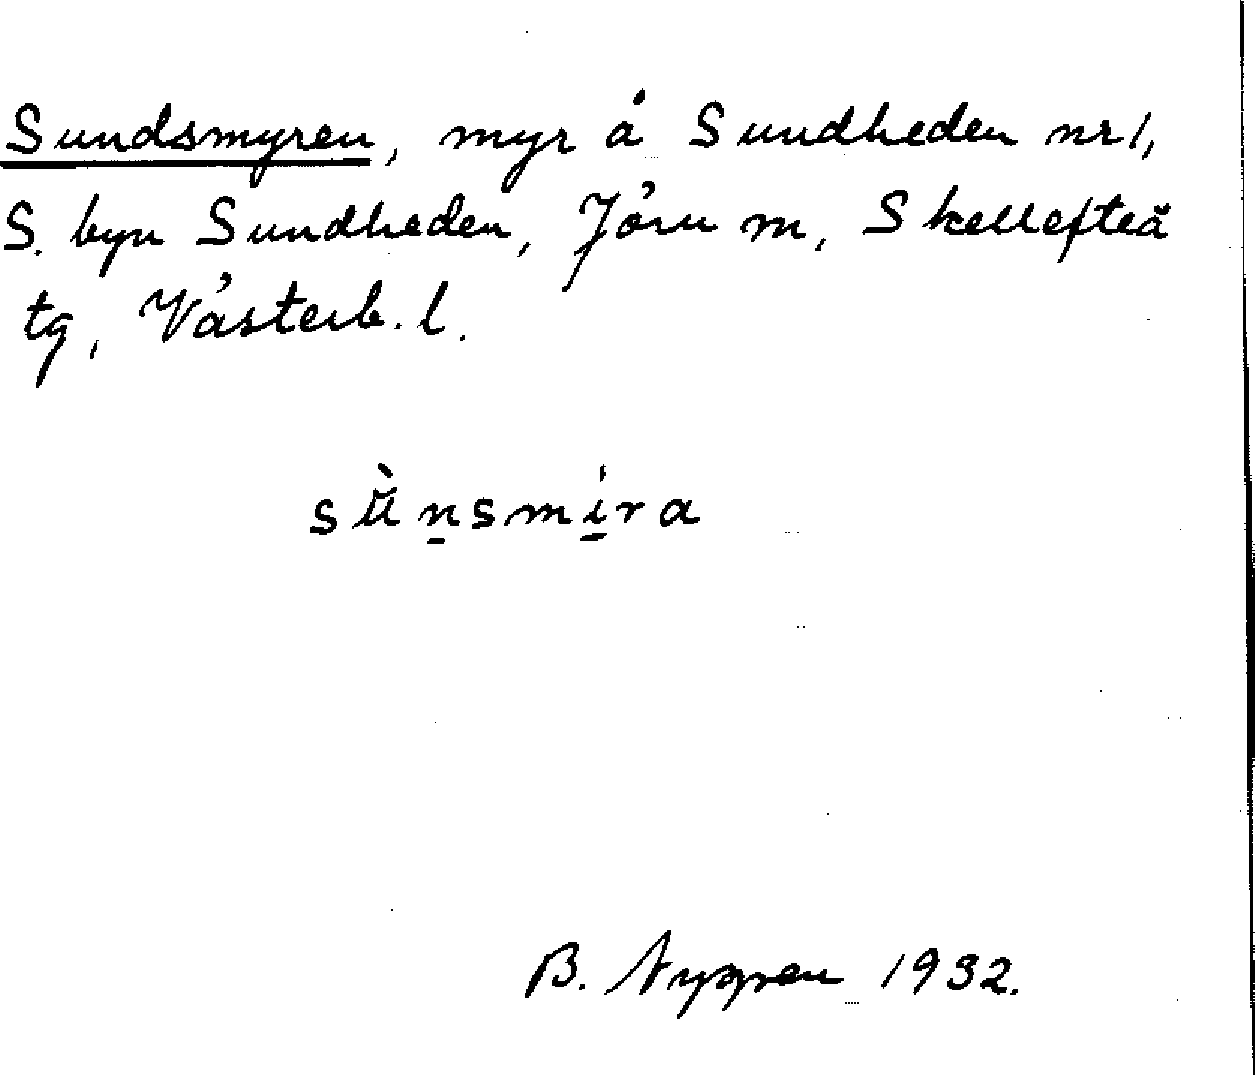 Sundsmyren, myr å Sundheden nr 1,
S. byn Sundheden, Jörn m, Skellefteå
tg, Västerb. l.
sùn̠smi̠ra
B. Nygren 1932.